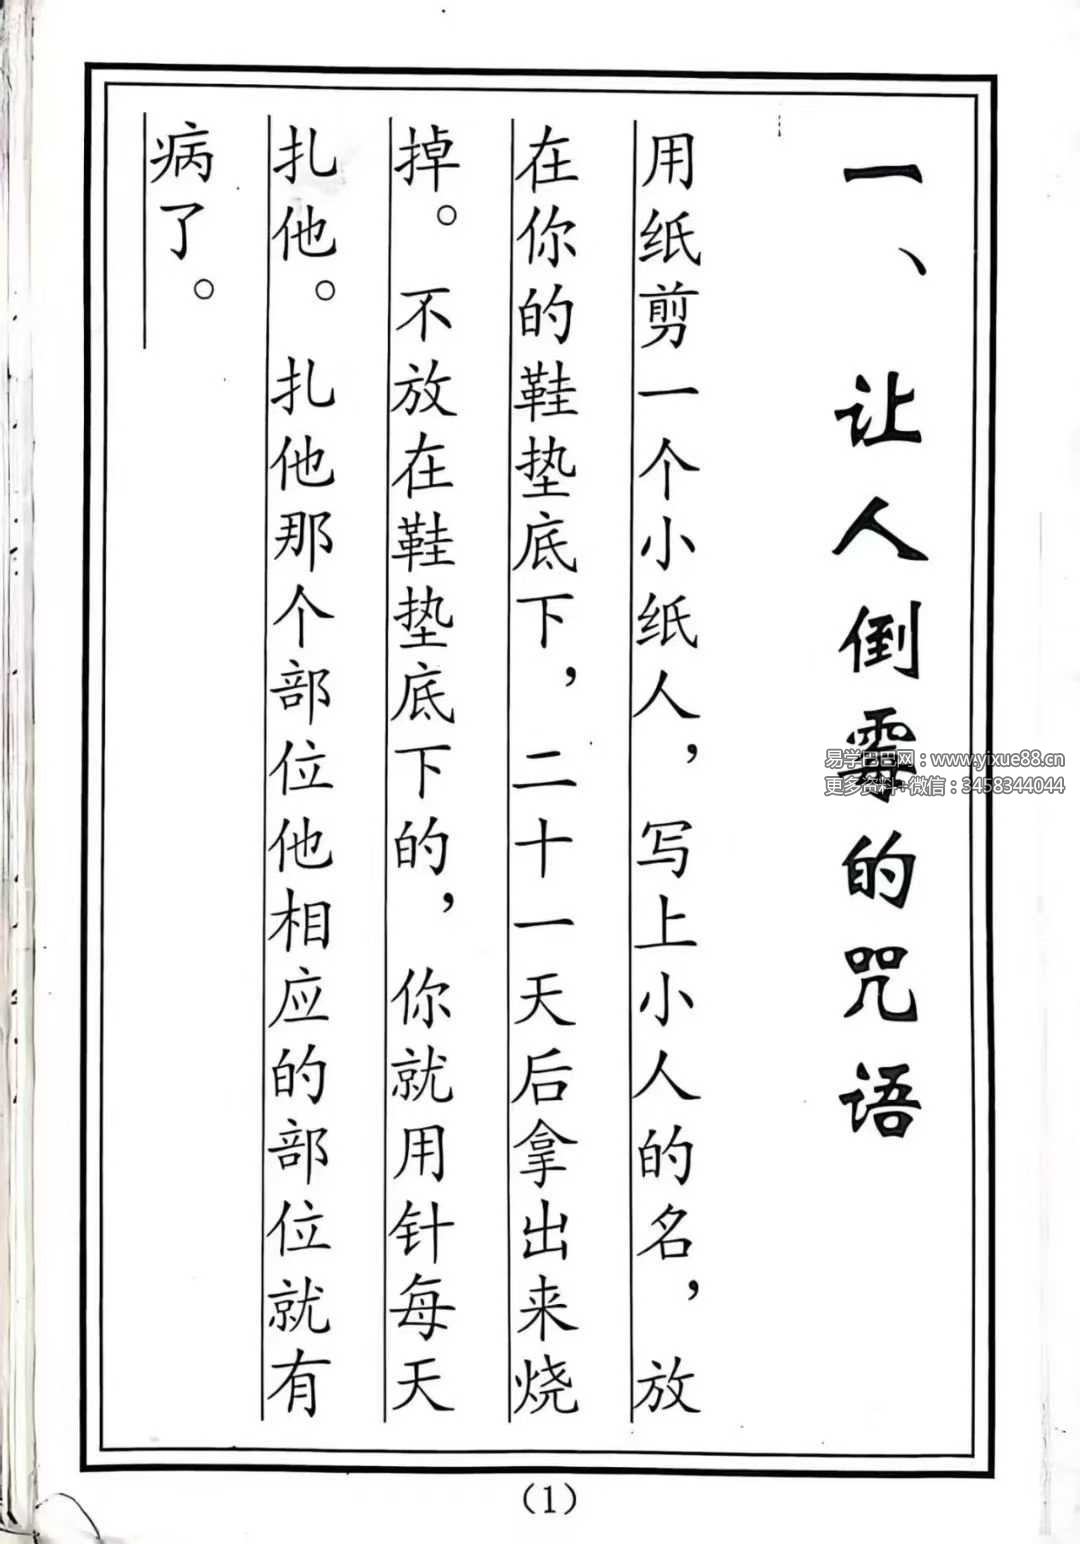 一、让人倒霉的咒语
用纸剪一个小纸人，写上小人的名，放
在你的鞋垫底下，二十一天后拿出来烧
掉。不放在鞋垫底下的，你就用针每天
扎他。扎他那个部位他相应的部位就有
病了。
易学巴巴网：www.yixue88.cn
更多资料+微信：3458344044
（1）